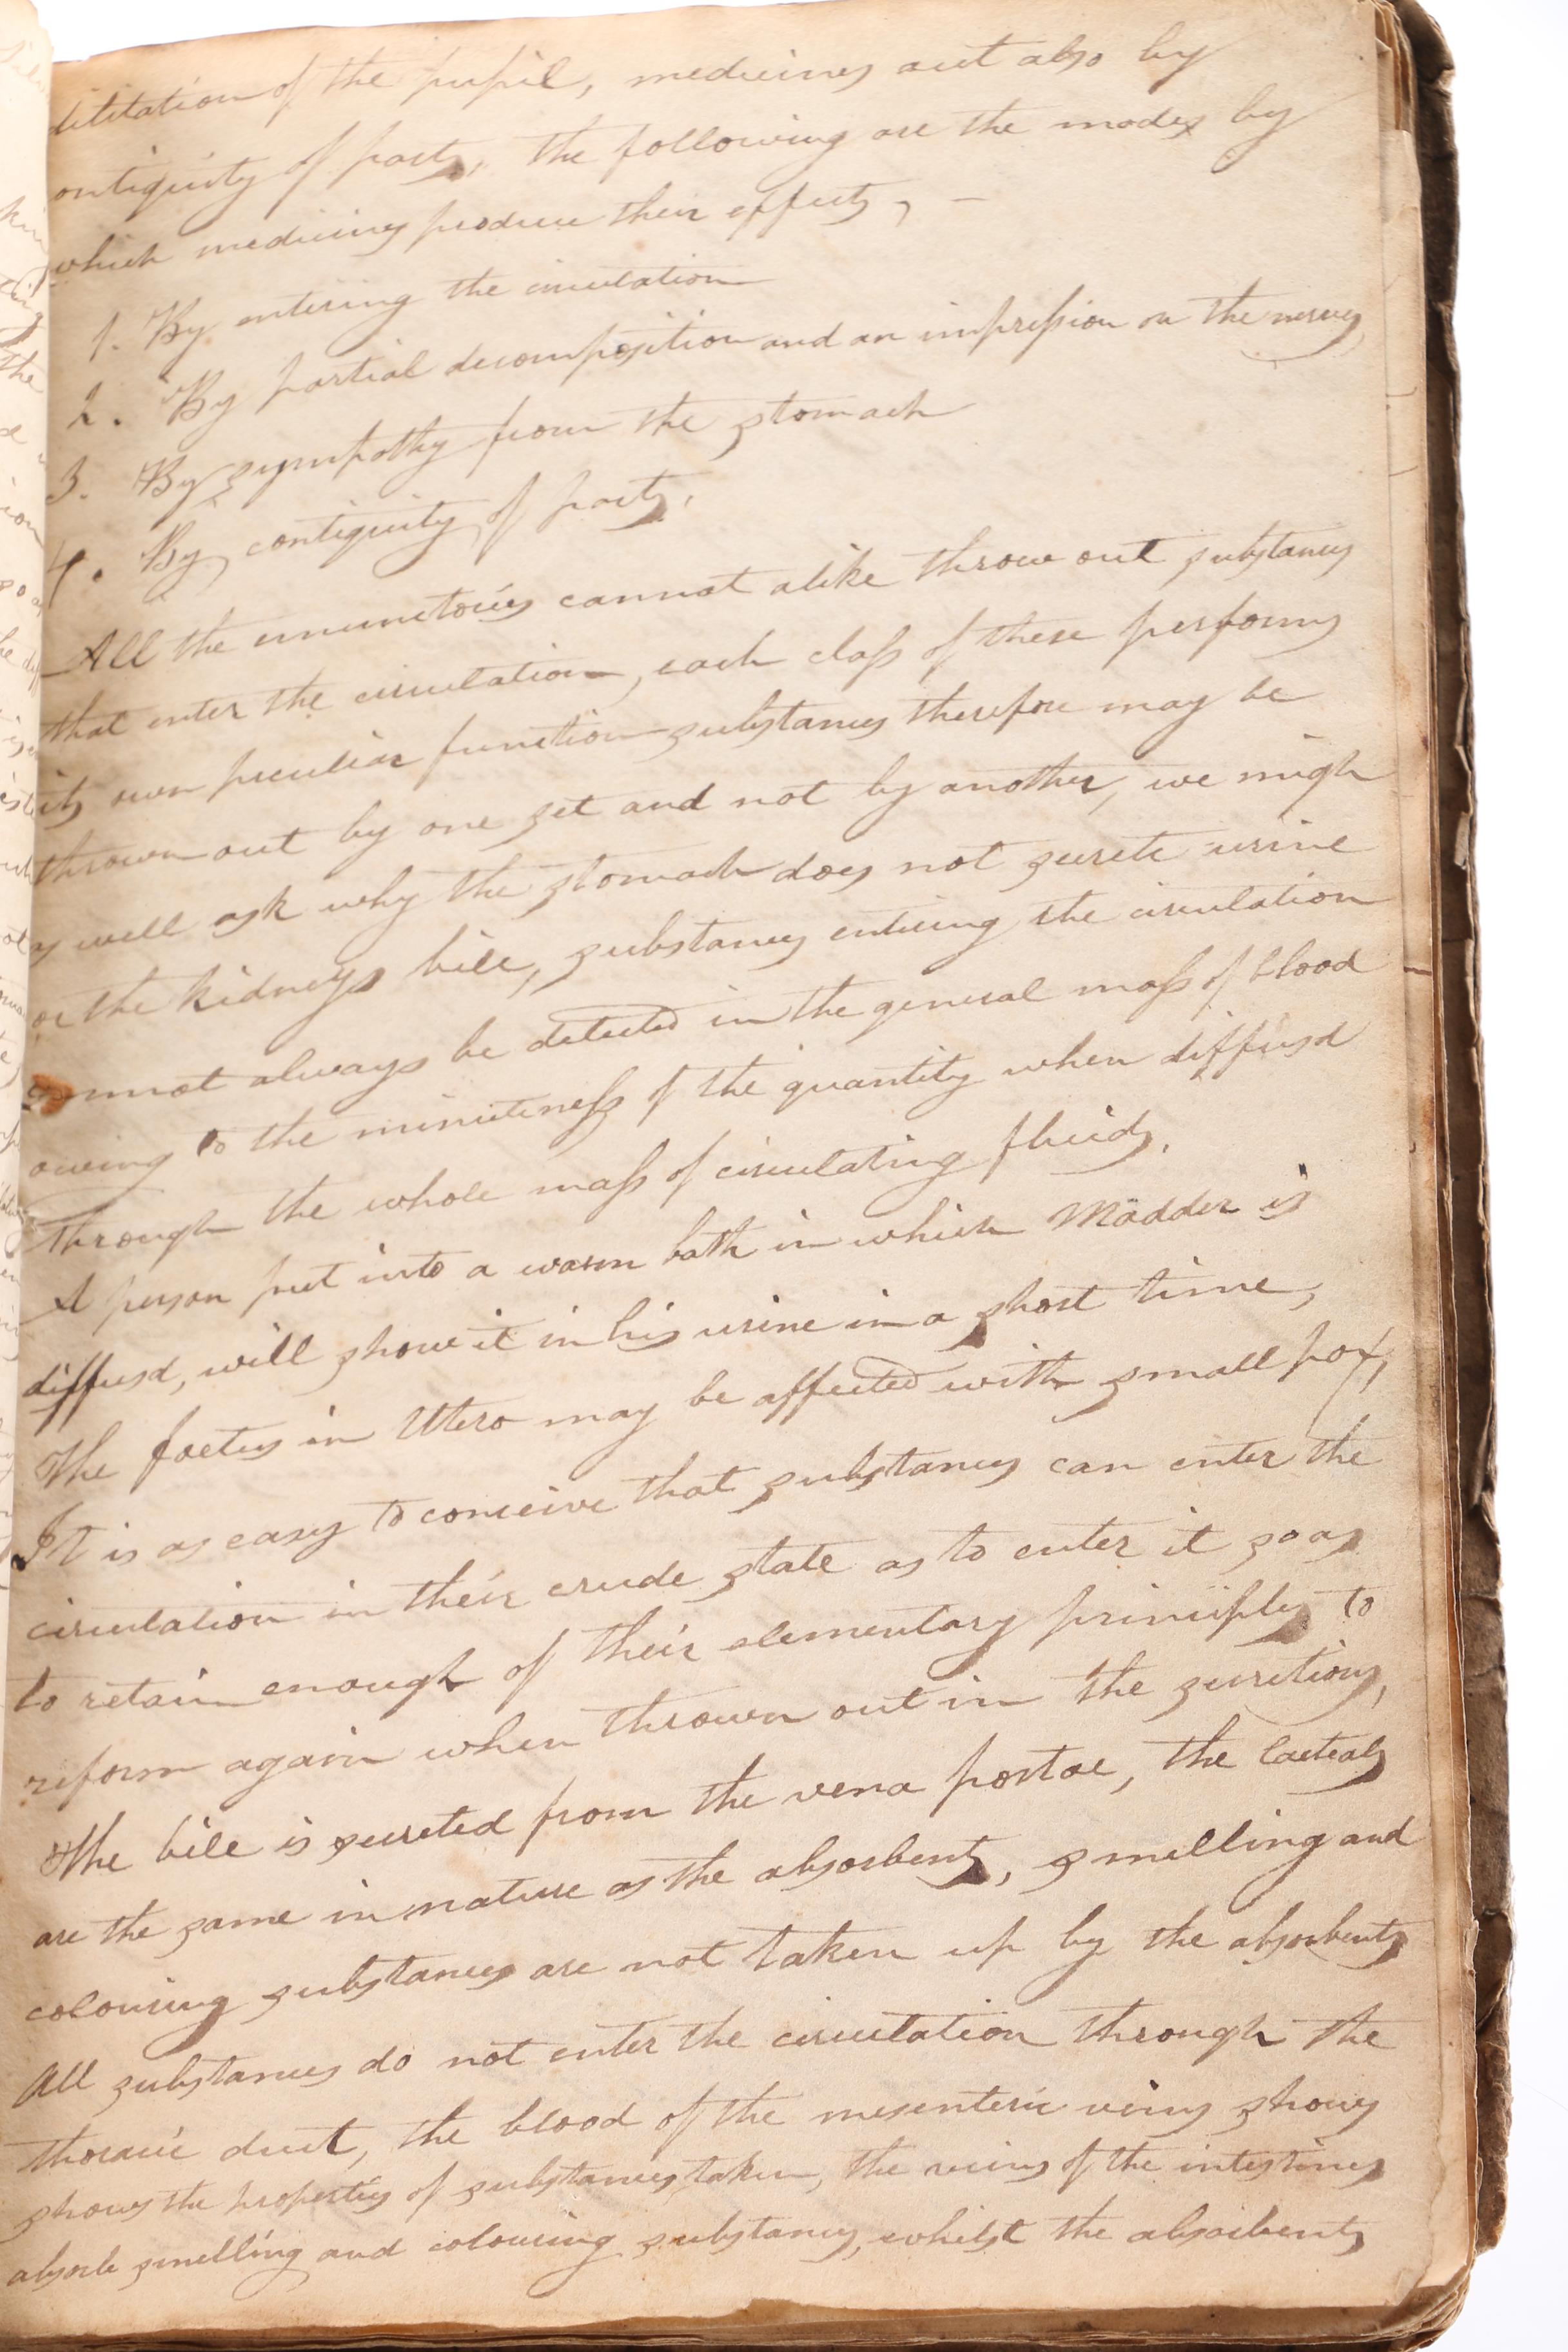 dilitation of the pupil, medicines act also by
ontiguity of parts, the following are the modes by
which medicines produce their effects, –
1. By entering the circulation
2. By partial decomposition and an impression on the nerves,
3. By sympathy from the stomach
4. By contiguity of parts.
All the emunctories cannot alike throw out substances
that enter the circulation, each class of these performs
its own peculiar function substances therefore may be
thrown out by one set and not by another, we migh
s well ask why the stomach does not secrete urine
or the kidneys bile, substances entering the circulation
cannot always be detected in the general mass of blood
owing to the minuteness of the quantity when diffusd
through the whole mass of circulating fluids.
A person put into a warm bath in which Madder is
diffusd, will show it in his urine in a short time,
The foetus in Utero may be affected with small pox,
It is as easy to conceive that substances can enter the
circulation in their crude state as to enter it so as
to retain enough of their elementary principles to
reform again when thrown out in the secretions,
The bile is secreted from the vena portae, the lacteals
are the same in nature as the absorbents, smelling and
colouring substances are not taken up by the absorbents
All substances do not enter the circulation through the
thoracic duct, the blood of the mesenteric veins shows
shows the properties of substances taken, the veins of the intestines
absorb smelling and colouring substances, whilst the absorbents